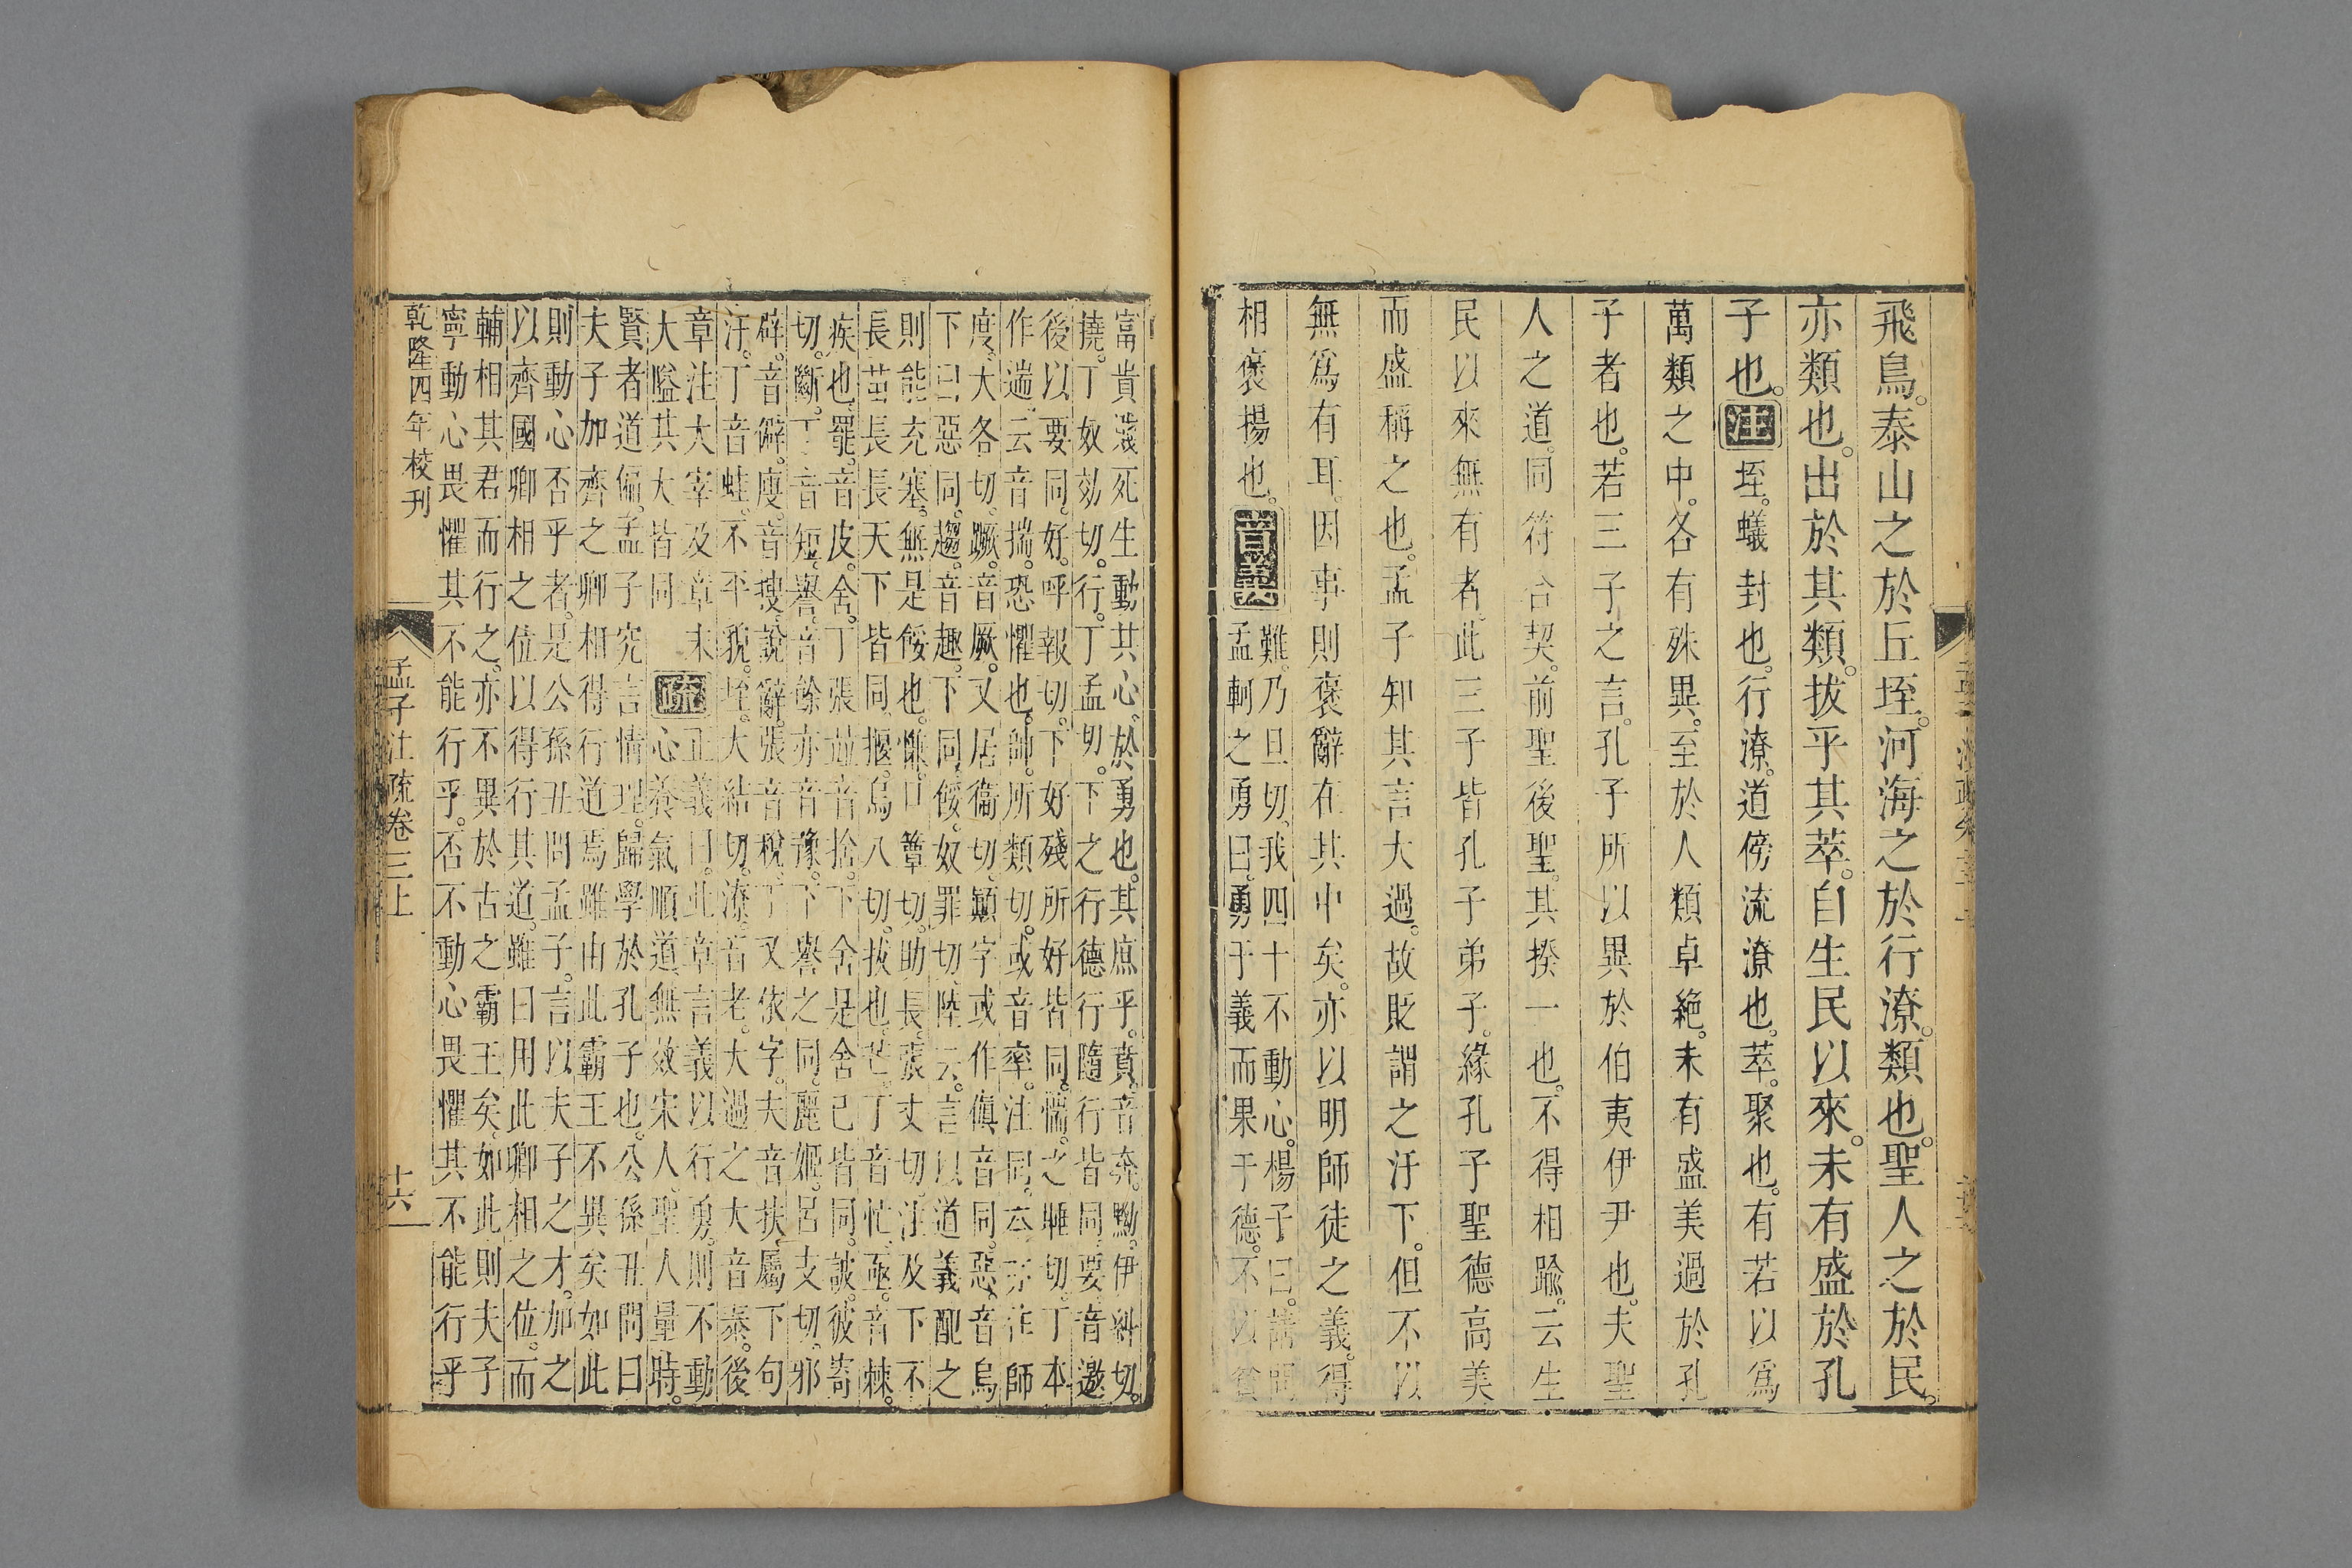 飛鳥。泰山之於丘垤。河海之於行潦。類也。聖人之於民。
亦類也。出於其類。拔乎其萃。自生民以來。未有盛於孔
子也。注垤。蟻封也。行潦。道傍流潦也。萃。聚也。有若以爲
萬類之中。各有殊異。至於人類卓絶。未有盛美過於孔
子者也。若三子之言。孔子所以異於伯夷伊尹也。夫聖
人之道。同符合契。前聖後聖。其揆一也。不得相踰。云生
民以來無有者。此三子皆孔子弟子。緣孔子聖德高美
而盛稱之也。孟子知其言大過。故貶謂之汙下。但不以
無爲有耳。因事則褒辭在其中矣。亦以明師徒之義。得
相褒揚也。音義難。乃旦切。我四十不動心。楊子曰。請問
孟軻之勇曰。勇于義而果于德。不以貧
富貴賤死生動其心。於勇也。其庶乎。賁。音奔。黝。伊糾切。
撓。丁奴効切。行。丁孟切。下之行德行隨行皆同。要。音邀
後以要同。好。呼報切。下好殘所好皆同。惴。之睡切。丁本
作遄云音揣。恐懼也。帥。所類切。或音率。注同。本亦作師
度。大各切。蹶。音厥。又居衞切。顚字或作傎音同。惡。音烏
下曰惡同。趨。音趣。下同。餒。奴罪切。陸云。言以道義配之
則能充塞。無是餒也。慊。口簟切。助長。張丈切。注及下不
長茁長長長天下皆同。揠。烏八切。拔也。芒。丁音忙。亟。音棘。
疾也。罷。音皮。舍。丁張竝音捨。下舍是舍已皆同。詖。彼寄
切。斷。丁音短。譽。音餘亦音豫。下譽之同。麗姬。呂支切。邪
辟。音僻。廋。音搜。說辭。張音稅。丁又依字。夫音扶。屬下句
汙。丁音蛙。不平貌。垤。大結切。潦。音老。大過之大音泰。後
章注大宰及章末
大隘其大皆同
疏正義曰。此章言義以行勇。則不動
心。養氣順道。無效宋人。聖人量時。
賢者道偏。孟子究言情理。歸學於孔子也。公孫丑問曰
夫子加齊之卿相得行道焉雖由此霸王不異矣如此
則動心否乎者。是公孫丑問孟子。言以夫子之才。加之
以齊國卿相之位以得行其道。雖曰用此卿相之位。而
輔相其君而行之。亦不異於古之霸王矣。如此則夫子
寧動心畏懼其不能行乎。否不動心畏懼其不能行乎
乾隆四年校刊
孟子注疏卷三上
十六